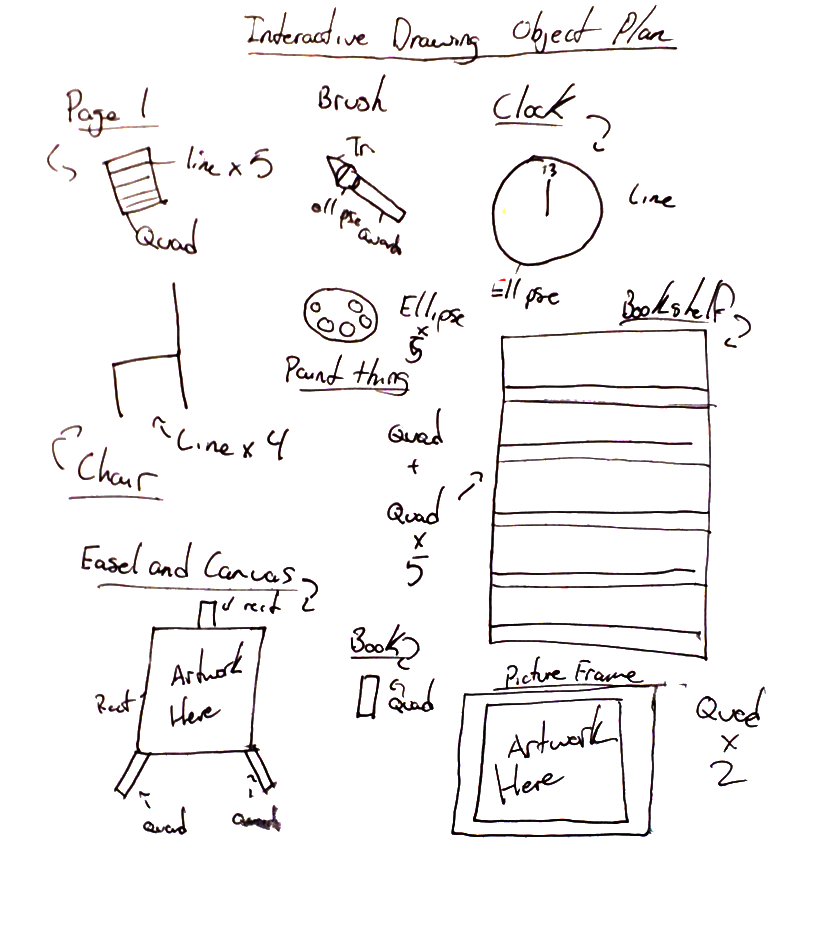 Interactive Drawing Object Plan
Page 1
line x 5
Quad
Brush
Tri
ellipse
Quad
Clock
13
Line
Ellipse
Line x 4
Chair
Ellipse
x
5
Paint thing
Bookshelf
Quad
+
Quad
x
5
Easel and Canvas
rect
Artwork
Here
Rect
Quad
Quad
Book
Quad
Picture Frame
Artwork
Here
Quad
x
2